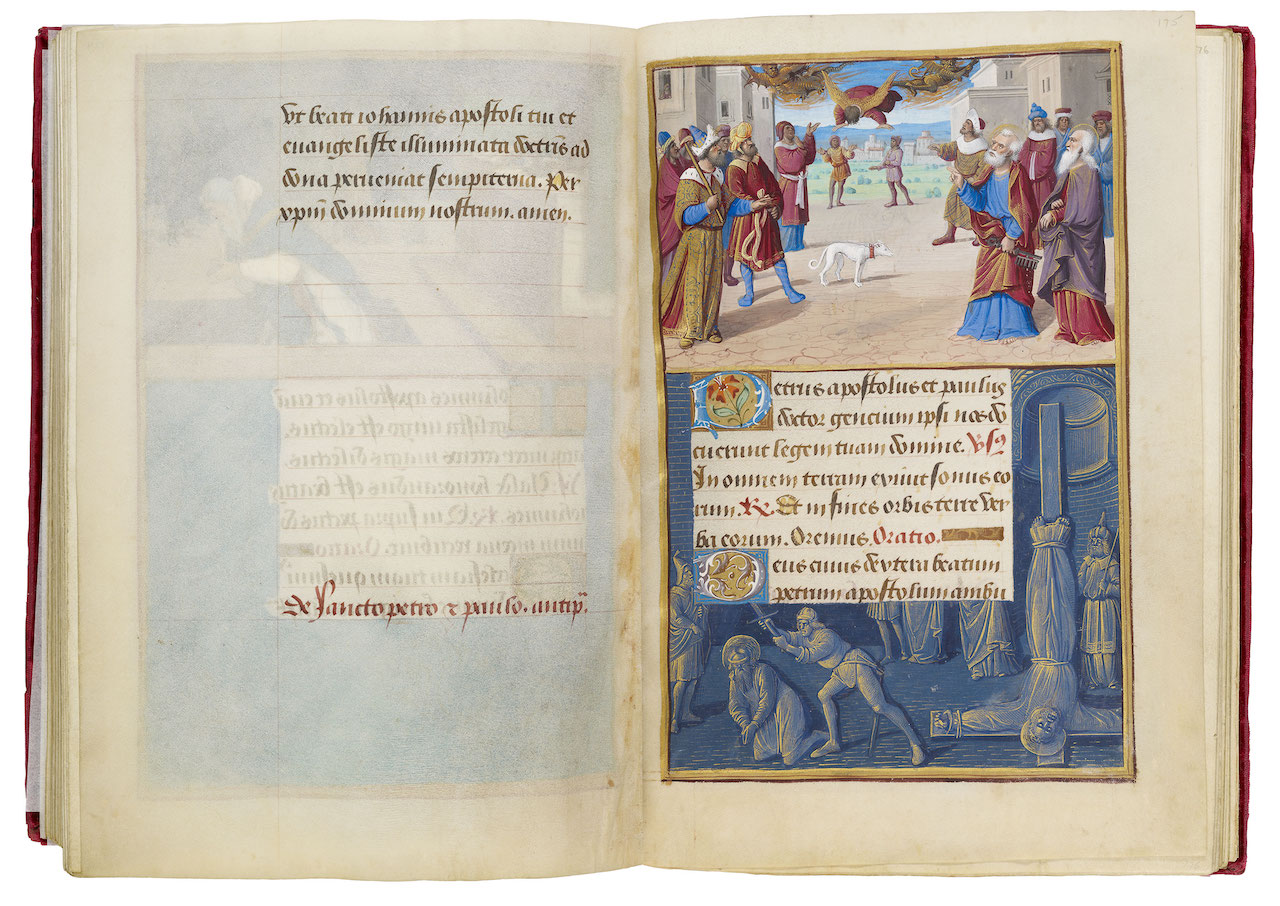 Ut beati iohannis apostoli tui et
euangeliste illuminata doctrinis ad
dona perueniat sempiterna. Per
xpm dominum nostrum. amen.
De sancto petro et paulo. antiph.
195
Petrus apostolus et paulus
doctor gencium ipsi nos do
cuerunt legem tuam domine. Vs
In omnem terram exiuit sonus eo
rum. R Et in fines orbis terre ver
ba eorum. Oremus. Oratio.
Deus cuius dextera beatum
petrum apostolum ambu